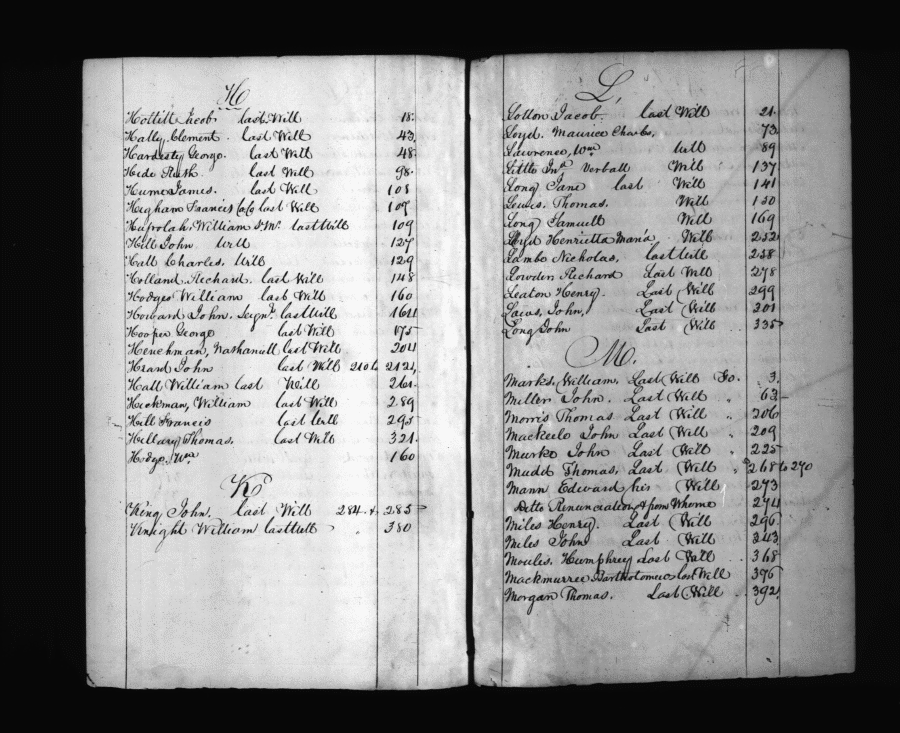 H
Hottilt Jacob last Will 18
Hally Clement last Will 43
Hardesty George last Will 48
Hide Ruth last Will 98
Hume James last Will 108
Higham Francis last Will 109
William last Will 109
Hill John Will 127
Hall Charles, Will 129
Holland, Richard last Will 148
Hodges William last Will 160
John, last Will 164
Hooper George last Will 175
Henchman, Nathaniell last Will 204
Heard John last Will 210 to 212
Hall William last Will 261
Hickman, William last Will 289
Hill Francis last Will 295
Hillary Thomas, last Will 321
Hodge, Wm 160
K
King John, last Will 284 & 285
Knight William last Will " 380
L.
Lotton Jacob. last Will 21
Loyd. Maurice Charles, 73
Lawrence, Wm Will 89
Little Jna Verball Will 137
Long Jane last Will 141
Lewis, Thomas, Will 150
Long Samuell Will 169
Loyd Henrietta Maria Will 252
Lambe Nicholas, last Will 258
Lowder Richard Last Will 278
Leaton Henry. Last Will 299
John, Last Will 301
Long John Last Will 335
M.
Marks, William, Last Will Fo. 3
Miller John. Last Will " 63
Morris Thomas Last Will " 206
Mackeele John Last Will " 209
Murke John Last Will " 225
Mudd Thomas, Last Will " 268 to 270
Mann Edward his Will 273
Ditto Renunciation & from Whome 274
Miles Henry. Last Will 296
Miles John Last Will 343
Moulis, Humphrey Last Will 368
Mackmurree Bartholomew Last Will 376
Morgan Thomas. Last Will 392